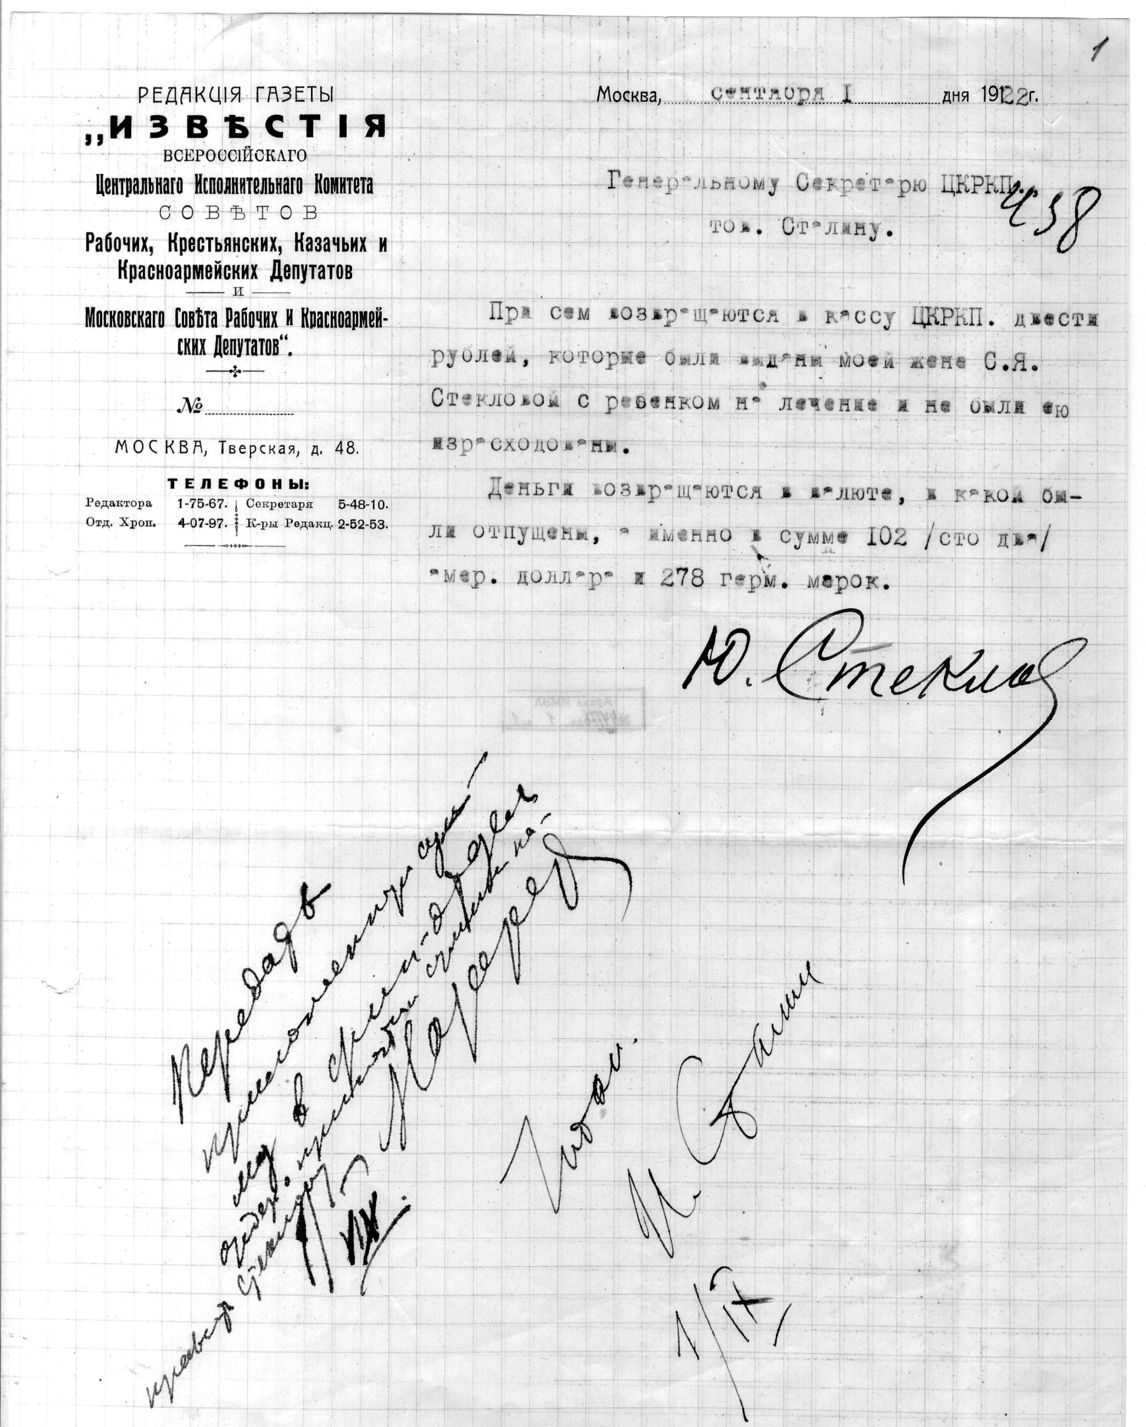 1
РЕДАКЦІЯ ГАЗЕТЫ
„ИЗВѢСТІЯ
ВСЕРОССІЙСКАГО
Центральнаго Исполнительнаго Комитета
СОВѢТОВ
Рабочих, Крестьянских, Казачьих и
Красноармейских Депутатов
и
Московскаго Совѣта Рабочих и Красноармей-
ских Депутатов".
№
МОСКВА, Тверская, д. 48.
ТЕЛЕФОНЫ:
Редактора 1-75-67. Секретаря 5-48-10.
Отд. Хрон. 4-07-97. К-ры Редакц. 2-52-53.
Москва, сентября I дня 1922г.
Генеральному Секретарю ЦКРКП.
438
тов. Сталину.
При сем возвращаются в кассу ЦКРКП. двести
рублей, которые были выданы моей жене С.Я.
Стекловой с ребенком на лечение и не были ею
израсходованы.
Деньги возвращаются в валюте, в какой бы-
ли отпущены, а именно в сумме I02 /сто два/
амер. доллара и 278 герм. марок.
Ю. Стеклов
Передать
в
1/IX
И. Сталин
1/IX